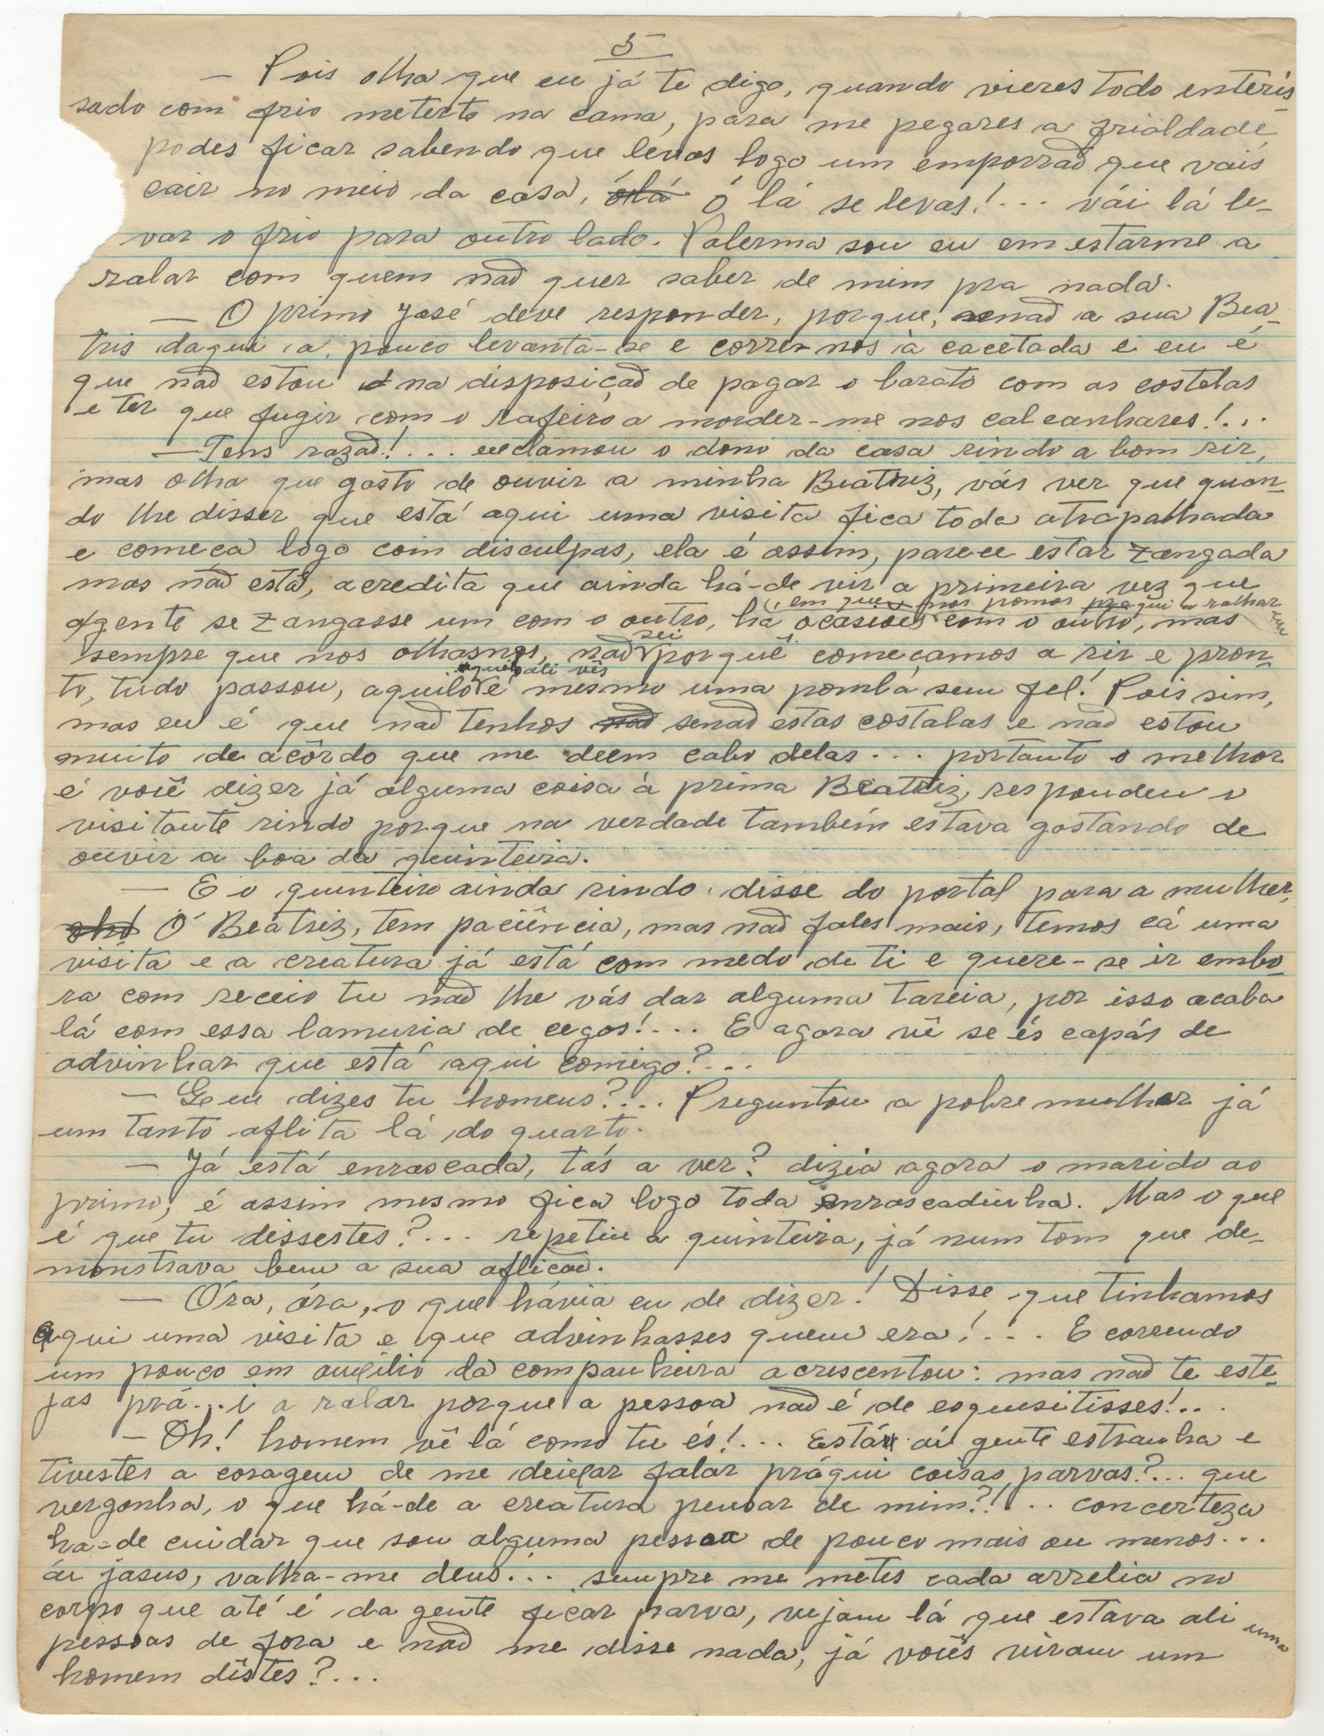 5
— Pois olha que eu já te digo, quando vieres todo enteris-
sado com frio meterte na cama, para me pegares a frialdade
podes ficar sabendo que levas logo um emporrão que vais
cair no meio da casa, ólá Ó lá se levas!... vái lá le-
var o frio para outro lado. Palerma sou eu em estarme a
ralar com quem não quer saber de mim pra nada.
— O primo José deve responder, porque, senão a sua Bea-
tris daqui a pouco levanta-se e corre-nos à cacetada e eu é
que não estou na disposição de pagar o barato com as costelas
e ter que fugir com o rafeiro a morder-me nos calcanhares!...
— Tens razão!... exclamou o dono da casa rindo a bom rir,
mas olha que gosto de ouvir a minha Beatriz, vás ver que quan-
do lhe disser que está aqui uma visita fica toda atrapalhada
e começa logo com disculpas, ela é assim, parece estar zangada
mas não está, acredita que ainda há-de vir a primeira vez que
em que nos pomos praqui a ralhar
agente se zangasse um com o outro, há ocasiões com o outro, mas
sei
sempre que nos olhasnos, não porquê começamos a rir e pron-
aquelo ali vês
to, tudo passou, aquilo é mesmo uma pomba sem fel! Pois sim,
mas eu é que não tenhos não senão estas costalas e não estou
muito de acôrdo que me deem cabo delas... portanto o melhor
é você dizer já alguma coisa à prima Beatriz, respondeu o
visitante rindo porque na verdade também estava gostando de
ouvir a boa da quinteira.
— E o quinteiro ainda rindo, disse do portal para a mulher,
oh! Ó Beatriz, tem paciência, mas não fales mais, temos cá uma
visita e a creatura já está com medo de ti e quere-se ir embo-
ra com receio tu não lhe vás dar alguma tareia, por isso acaba
lá com essa lamuria de cegos!... E agora vê se és capás de
advinhar que está aqui comigo?...
— Que dizes tu homens?... Preguntou a pobre mulher já
um tanto aflita lá do quarto.
— Já está enrascada, tás a ver? dizia agora o marido ao
primo, é assim mesmo fica logo toda enrascadinha. Mas o que
é que tu dissestes?... repetiu a quinteira, já num tom que de-
monstrava bem a sua aflição.
— Óra, óra, o que hávia eu de dizer! Disse que tinhamos
aqui uma visita e que advinhasses quem era!... E correndo
um pouco em auxílio da companheira acrescentou: mas não te este-
jas prá..i a ralar porque a pessoa não é de esquisitisses!...
— Oh! homem vê lá como tu és!... Está aí gente estranha e
tivestes a coragem de me deixar falar práqui coisas parvas?... que
vergonha, o que há-de a creatura pensar de mim?!... concerteza
ha-de cuidar que sou alguma pessoa de pouco mais ou menos...
ái jasus, valha-me deus... sempre me metes cada arrelia no
corpo que até é da gente ficar parva, vejam lá que estava ali uma
pessoas de fora e não me disse nada, já vocês viram um
homem dêstes?...